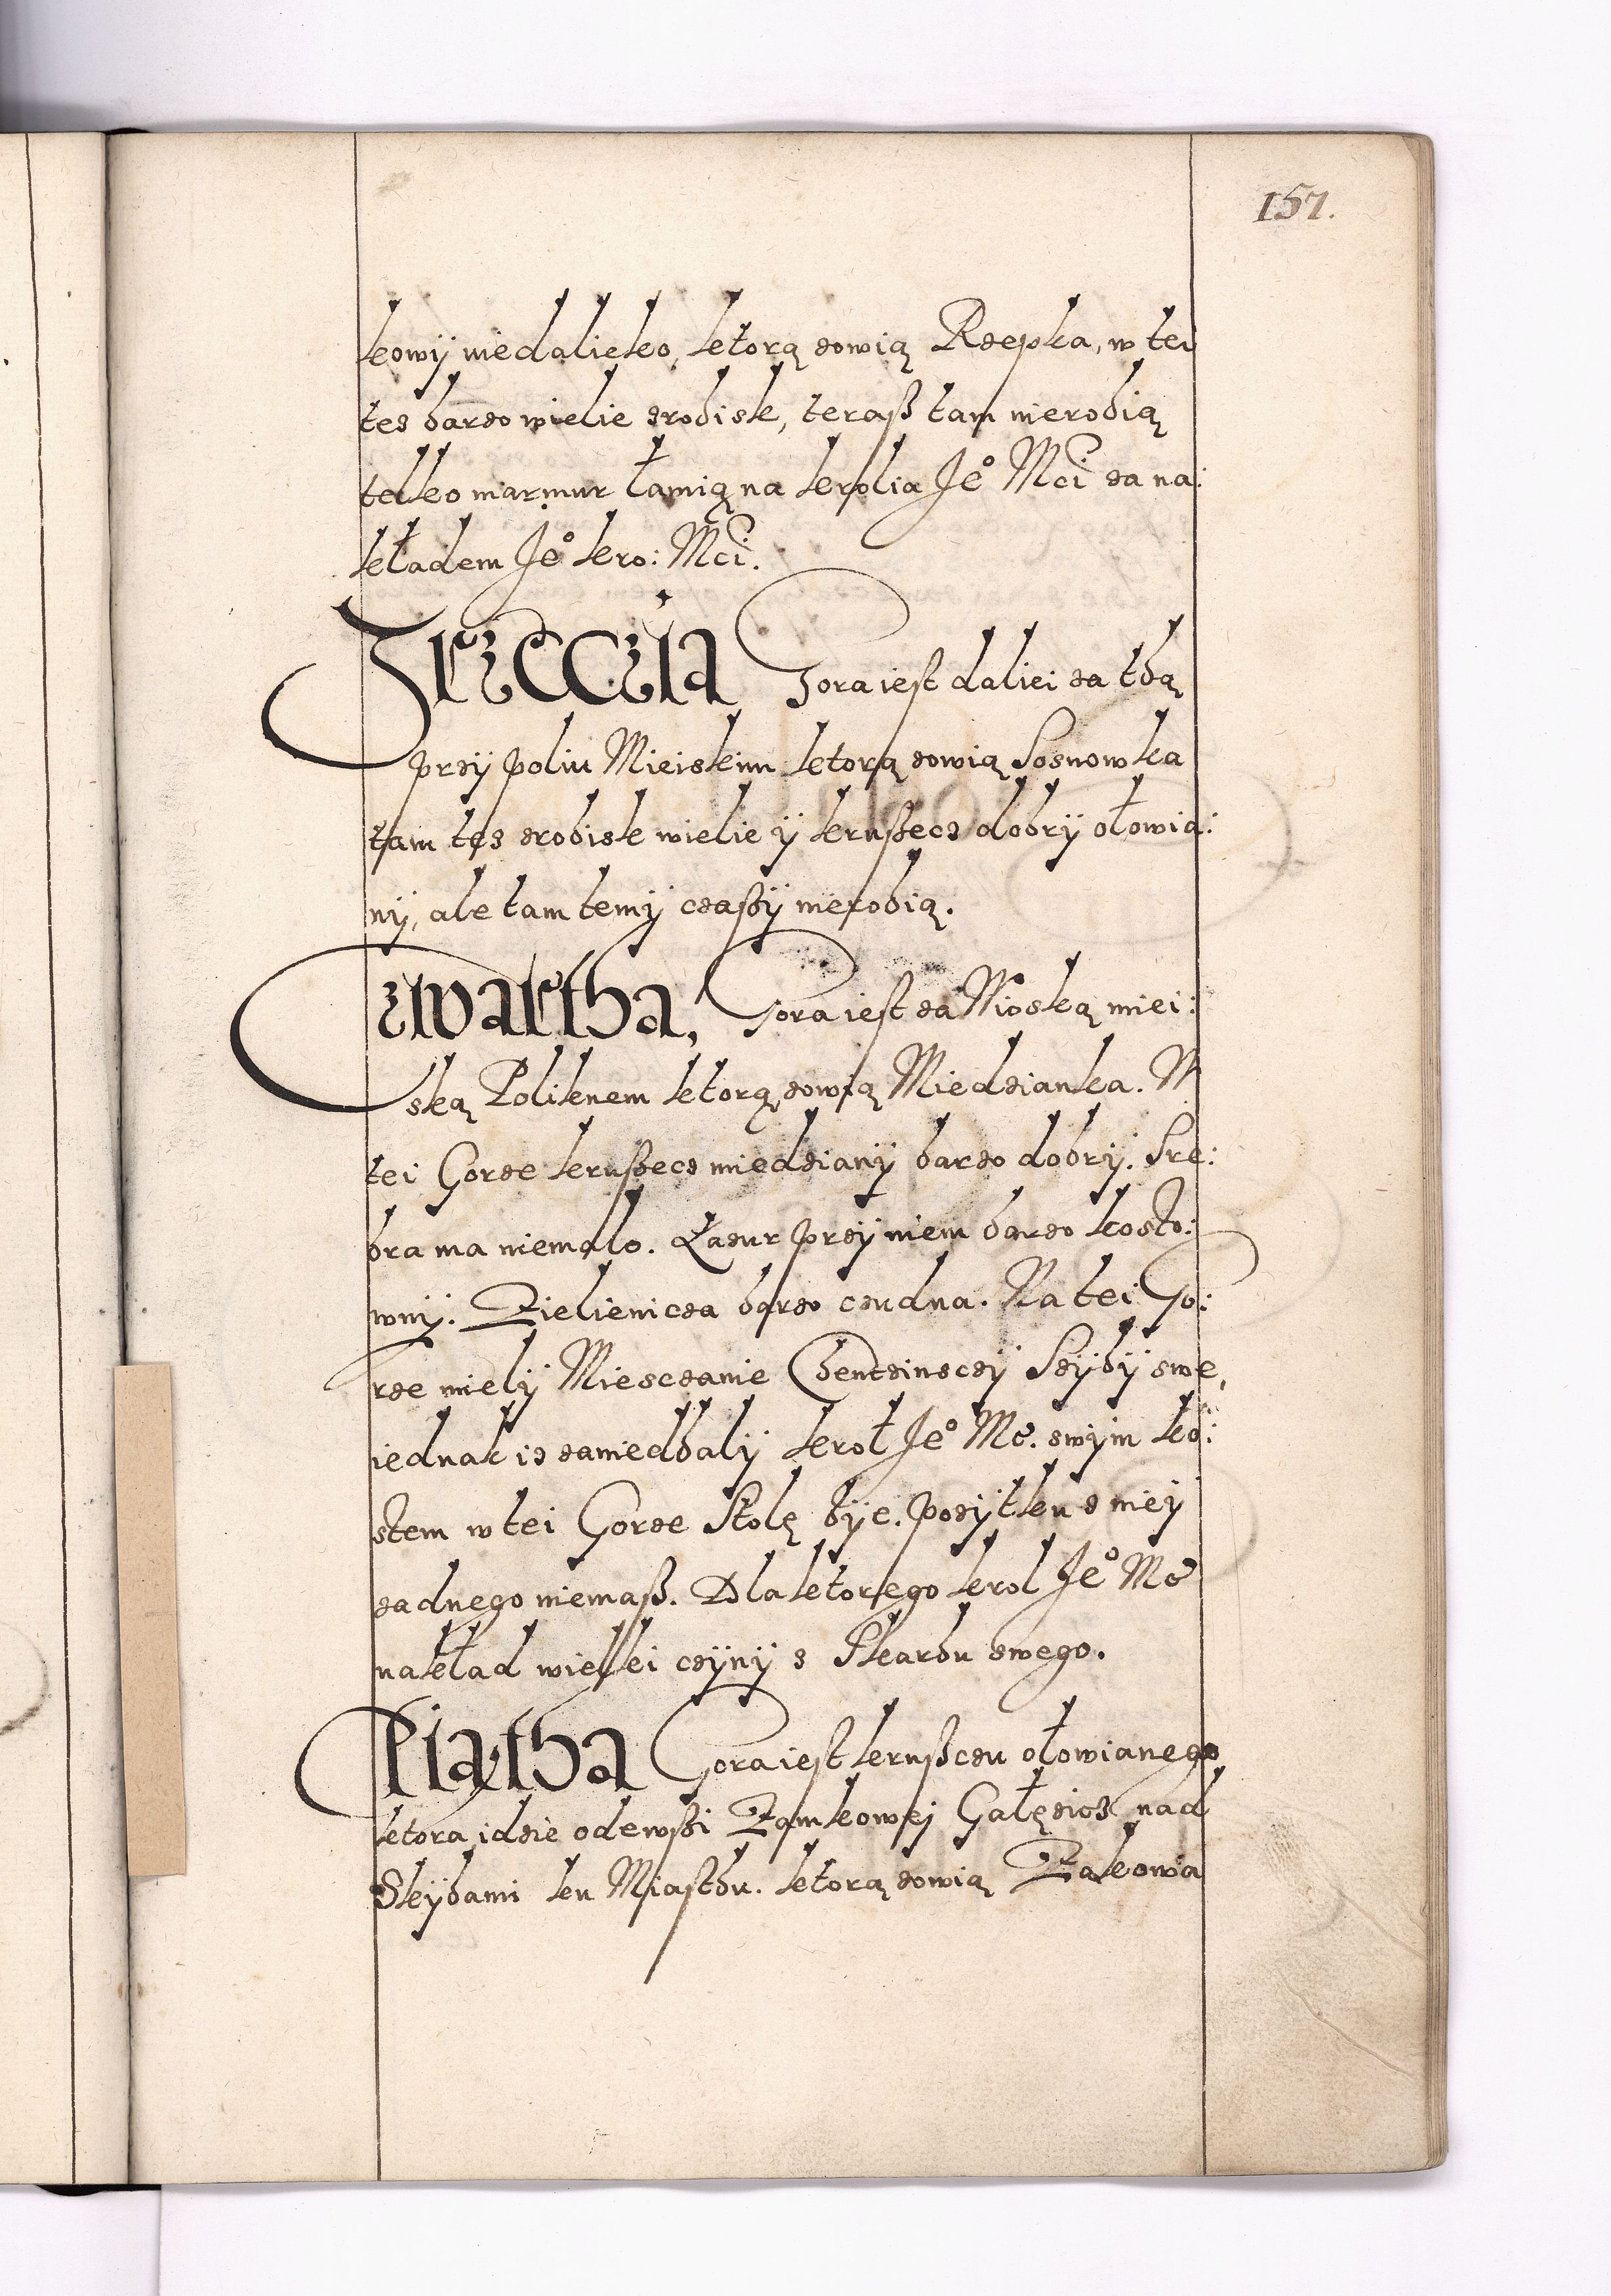 157.
kowÿ niedalieko, ktorą zowią Rzepka, w tei
tes barzo wielie zrobisk, teraß tam nierobią
telko marmur łamią na krolia Jeº Mci za na:
kładem Jeº kro: Mci.
Trzeccia Gora iest daliei za tbą
przÿ poliu Mieiskim ktorą zowią Sosnowka
tam tes zrobisk wielie ÿ krußecz dobrÿ ołowia:
nÿ, ale tam temÿ czaßÿ nierobią.
Czwartha, Gora iest za Wioską miei:
ską Poliknem ktorą zowią Miedzianka. W
tei Gorze krußecz miedzianÿ barzo dobrÿ. Sre:
bra ma niemalo. Lazur przÿ niem barzo kosto:
wnÿ. Zielienicza barzo czudna. Na tei Go:
rze mielÿ Miesczanie Chenczinsczÿ Szÿbÿ swe,
iednak iz zaniedbalÿ krol Jeº Mc. swÿm ko:
stem w tei Gorze Stolę bÿe. pozÿtku z niej
zadnego niemaß. Dla ktorego krol Jeº Mc
nakład wielki czÿnÿ z Skarbu swego.
Piątha Gora iest krußczu ołowianego
ktora idzie odewßi Zamkowej Gałęzicz nad
Skÿbami ku Miastbu. ktorą zowią Zakowa